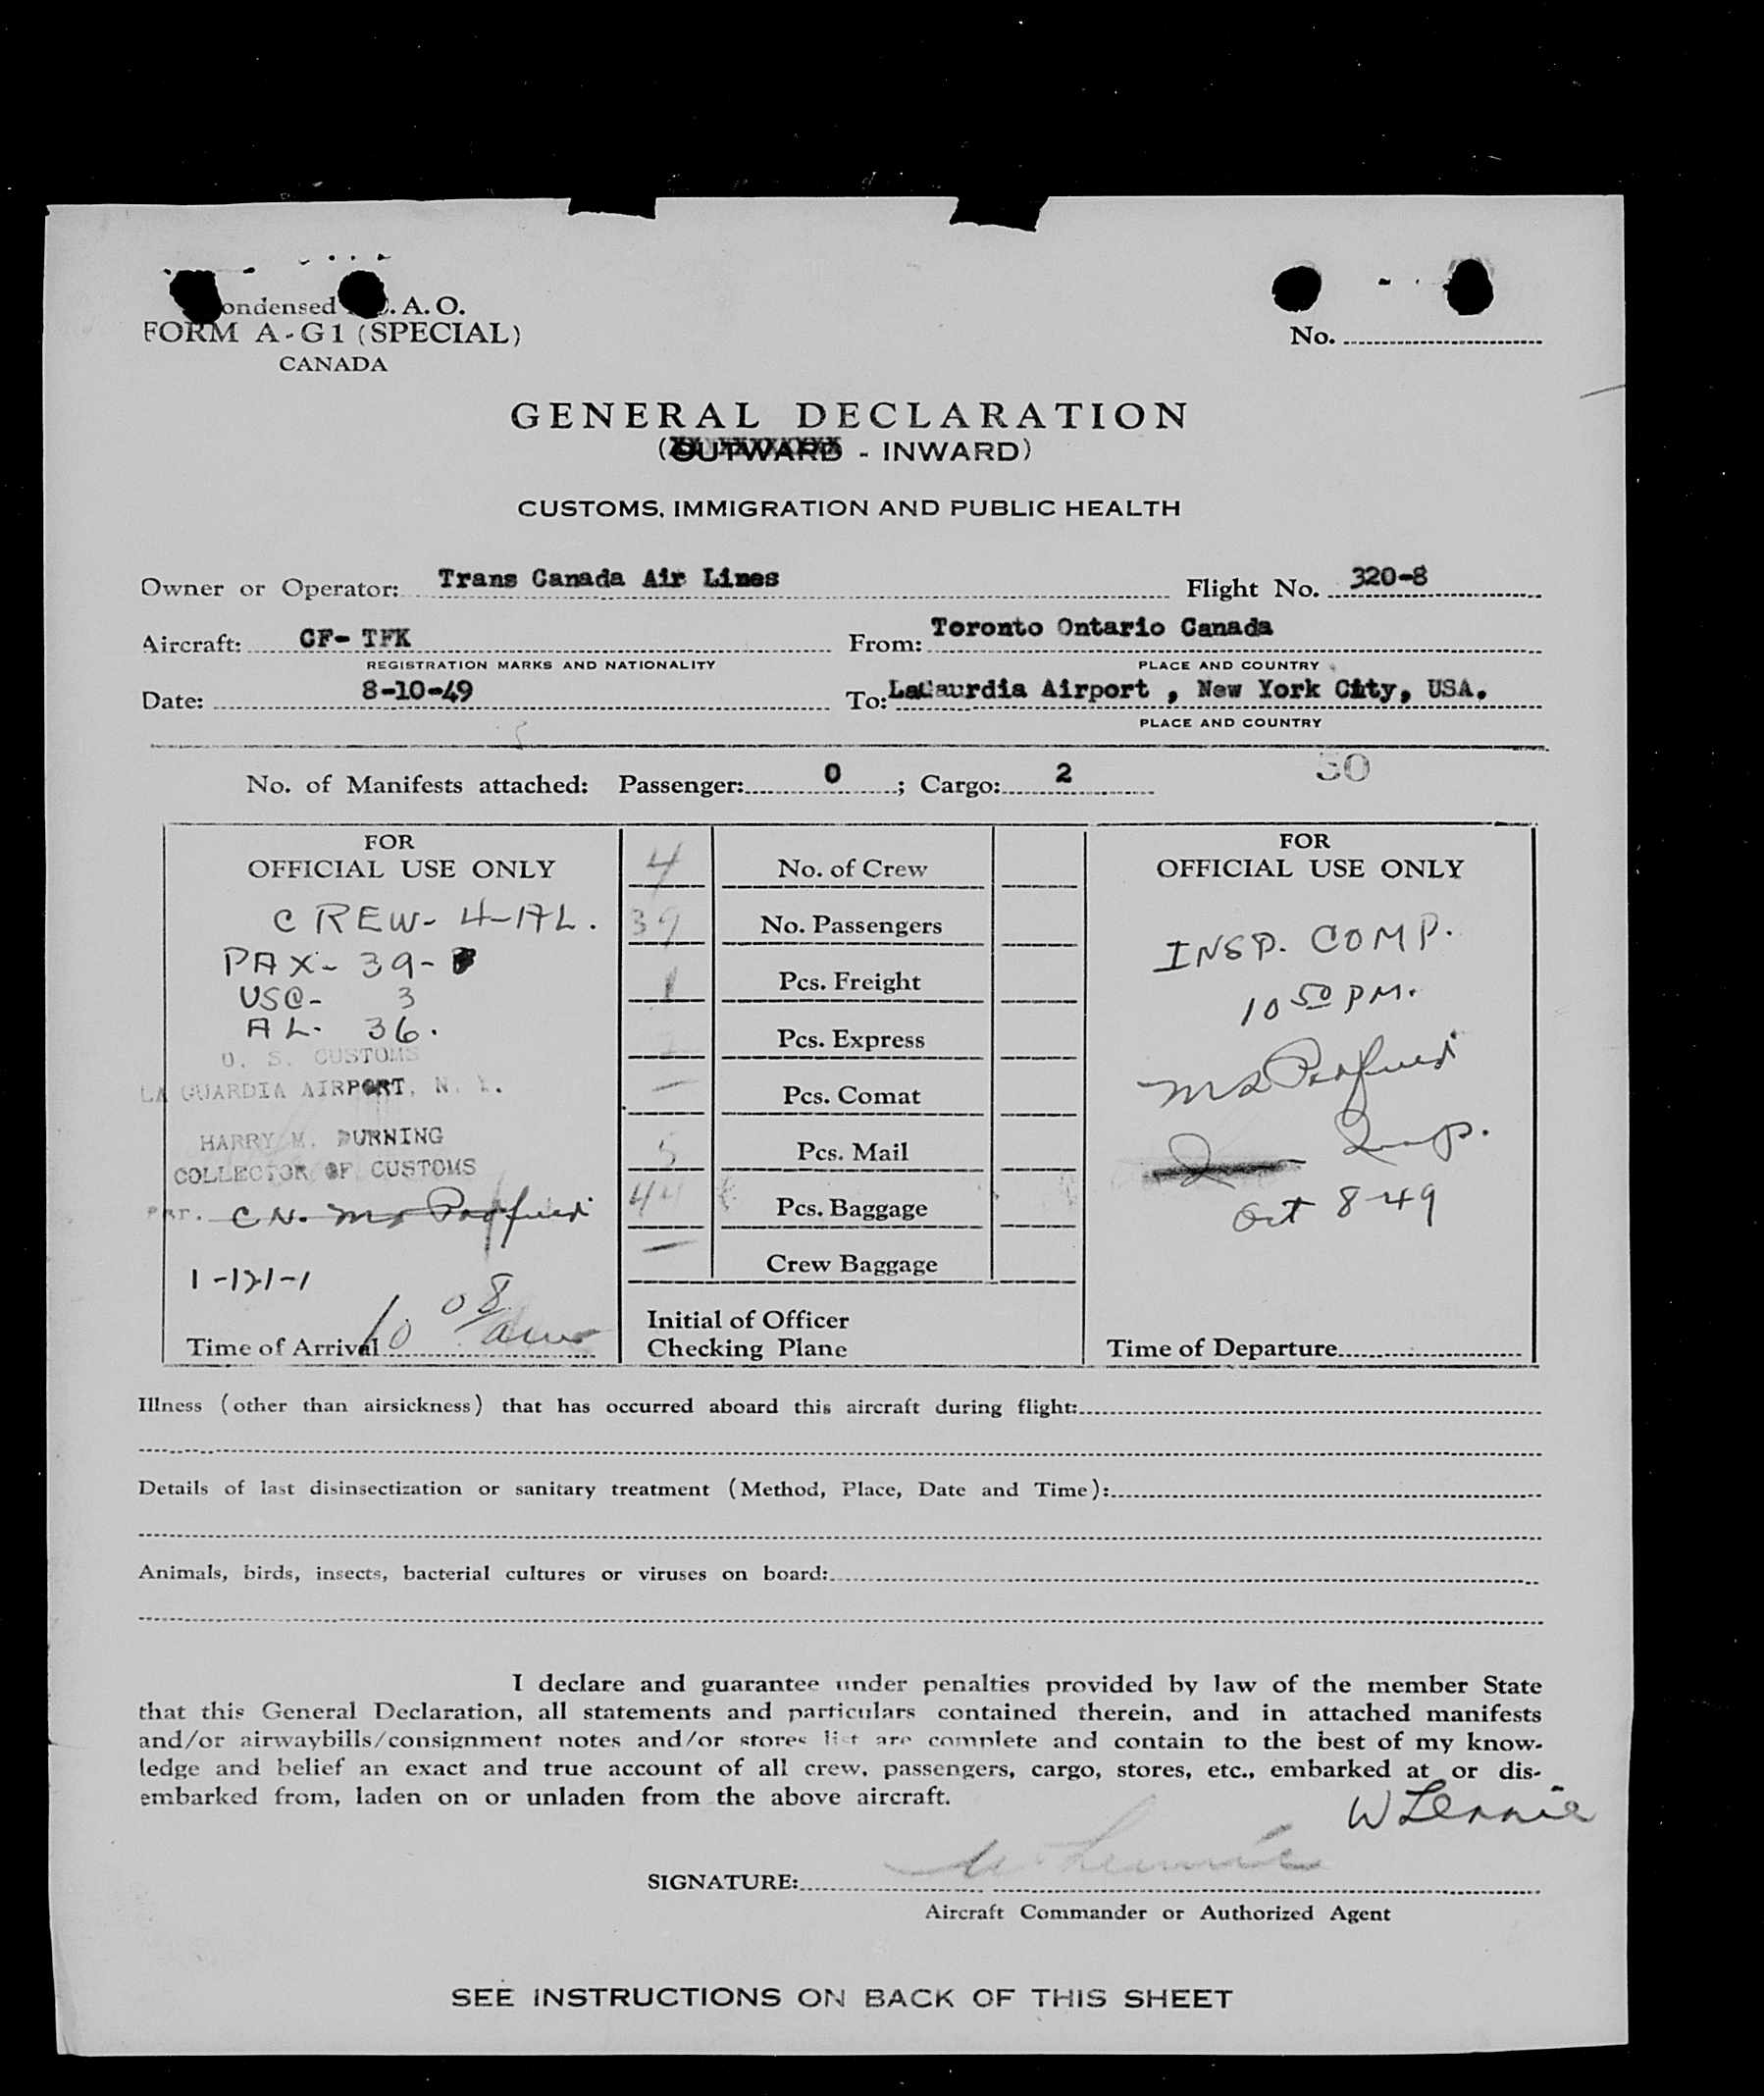 ondensed . A. O.
FORM A-G1 (SPECIAL)
CANADA
No.
GENERAL DECLARATION
(OUTWARD - INWARD)
CUSTOMS, IMMIGRATION AND PUBLIC HEALTH
Owner or Operator: Trans Canada Air Lines Flight No. 320-8
Aircraft: CF- TFK From: Toronto Ontario Canada
REGISTRATION MARKS AND NATIONALITY PLACE AND COUNTRY
Date: 8-10-49 To: Airport , New York City, USA.
PLACE AND COUNTRY
No. of Manifests attached: Passenger: 0 ; Cargo: 2
FOR
OFFICIAL USE ONLY
CREW- 4-AL.
PAX- 39-
USC- 3
AL- 36.
U. S. CUSTOMS
LA GUARDIA AIRPORT, N. Y.
HARRY M. DURNING
COLLECTOR OF CUSTOMS
1-121-1
Time of Arrival 10 08
4 No. of Crew
39 No. Passengers
1 Pcs. Freight
Pcs. Express
— Pcs. Comat
5 Pcs. Mail
44 Pcs. Baggage
— Crew Baggage
Initial of Officer
Checking Plane
FOR
OFFICIAL USE ONLY
INSP. COMP.
10 50 PM.
Insp.
Oct 8-49
Time of Departure
Illness (other than airsickness) that has occurred aboard this aircraft during flight:
Details of last disinsectization or sanitary treatment (Method, Place, Date and Time):
Animals, birds, insects, bacterial cultures or viruses on board:
I declare and guarantee under penalties provided by law of the member State
that this General Declaration, all statements and particulars contained therein, and in attached manifests
and/or airwaybills/consignment notes and/or stores list are complete and contain to the best of my know-
ledge and belief an exact and true account of all crew, passengers, cargo, stores, etc., embarked at or dis-
embarked from, laden on or unladen from the above aircraft.
W Lennie
SIGNATURE: W Lennie
Aircraft Commander or Authorized Agent
SEE INSTRUCTIONS ON BACK OF THIS SHEET